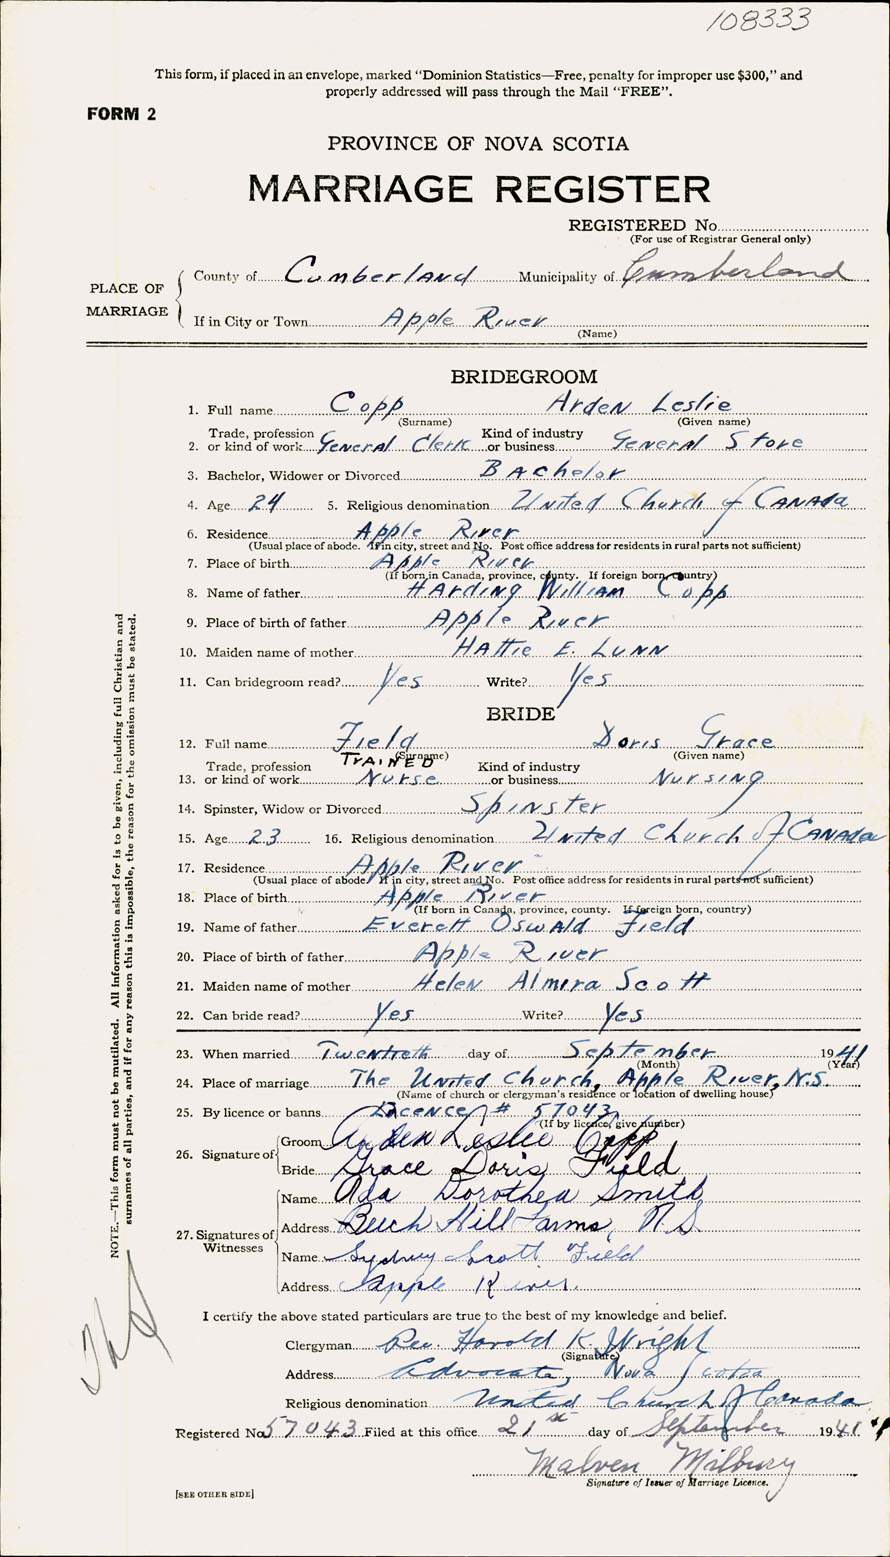 108333
This form, if placed in an envelope, marked "Dominion Statistics—Free, penalty for improper use $300," and
properly addressed will pass through the Mail "FREE".
FORM 2
PROVINCE OF NOVA SCOTIA
MARRIAGE REGISTER
REGISTERED No.
(For use of Registrar General only)
PLACE OF MARRIAGE
County of Cumberland Municipality of Cumberland
If in City or Town Apple River
(Name)
BRIDEGROOM
1. Full name Copp Arden Leslie
(Surname) (Given name)
2. Trade, profession or kind of work General Clerk Kind of industry or business General Store
3. Bachelor, Widower or Divorced Bachelor
4. Age 24 5. Religious denomination United Church of Canada
6. Residence Apple River
(Usual place of abode. If in city, street and No. Post office address for residents in rural parts not sufficient)
7. Place of birth Apple River
(If born in Canada, province, county. If foreign born, country)
8. Name of father Harding William Copp
9. Place of birth of father Apple River
10. Maiden name of mother Hattie E. Lunn
11. Can bridegroom read? Yes Write? Yes
BRIDE
12. Full name Field Doris Grace
(Surname) (Given name)
13. Trade, profession or kind of work TRAINED Nurse Kind of industry or business Nursing
14. Spinster, Widow or Divorced Spinster
15. Age 23 16. Religious denomination United Church of Canada
17. Residence Apple River
(Usual place of abode. If in city, street and No. Post office address for residents in rural parts not sufficient)
18. Place of birth Apple River
(If born in Canada, province, county. If foreign born, country)
19. Name of father Everett Oswald Field
20. Place of birth of father Apple River
21. Maiden name of mother Helen Almira Scott
22. Can bride read? Yes Write? Yes
23. When married Twentieth day of September 1941
(Month) (Year)
24. Place of marriage The United Church, Apple River, N.S.
(Name of church or clergyman's residence or location of dwelling house)
25. By licence or banns Licence # 57043
(If by licence, give number)
26. Signature of Groom Arden Leslie Copp
Bride Grace Doris Field
27. Signatures of Witnesses
Name Ada Dorothea Smith
Address Beech Hill Farms, N.S.
Name Sydney Scott Field
Address Apple River.
I certify the above stated particulars are true to the best of my knowledge and belief.
Clergyman Rev. Harold K. Wright
(Signature)
Address Advocate, Nova Scotia
Religious denomination United Church of Canada
Registered No. 57043 Filed at this office 21st day of September 1941
Malven Milbury
Signature of Issuer of Marriage Licence.
[SEE OTHER SIDE]
NOTE.—This form must not be mutilated. All information asked for is to be given, including full Christian and
surnames of all parties, and if for any reason this is impossible, the reason for the omission must be stated.